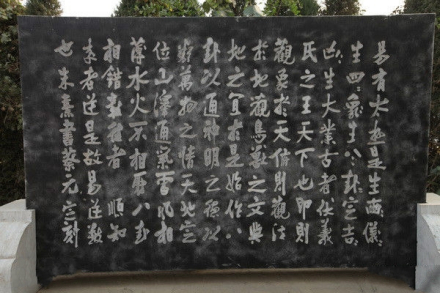 易有太極是生兩儀〻
生四〻象生八卦定吉〻
凶生大業古者伏羲
氏之王天下也仰則
觀象於天俯則觀法
於地觀鳥獸之文與
地之宜於是始作八
卦以通神明之德以
類萬物之情天地定
位山澤通氣雷風相
薄水火不相射八卦
相錯數往者順知
來者逆是故易逆數
也朱熹書蔡元定刻